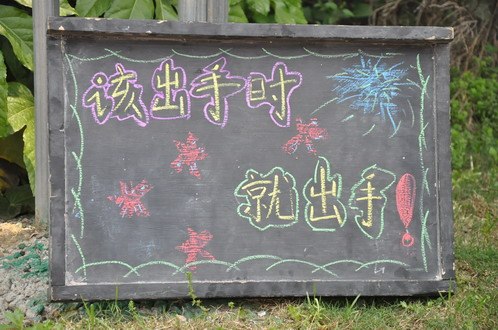 该出手时
就出手!